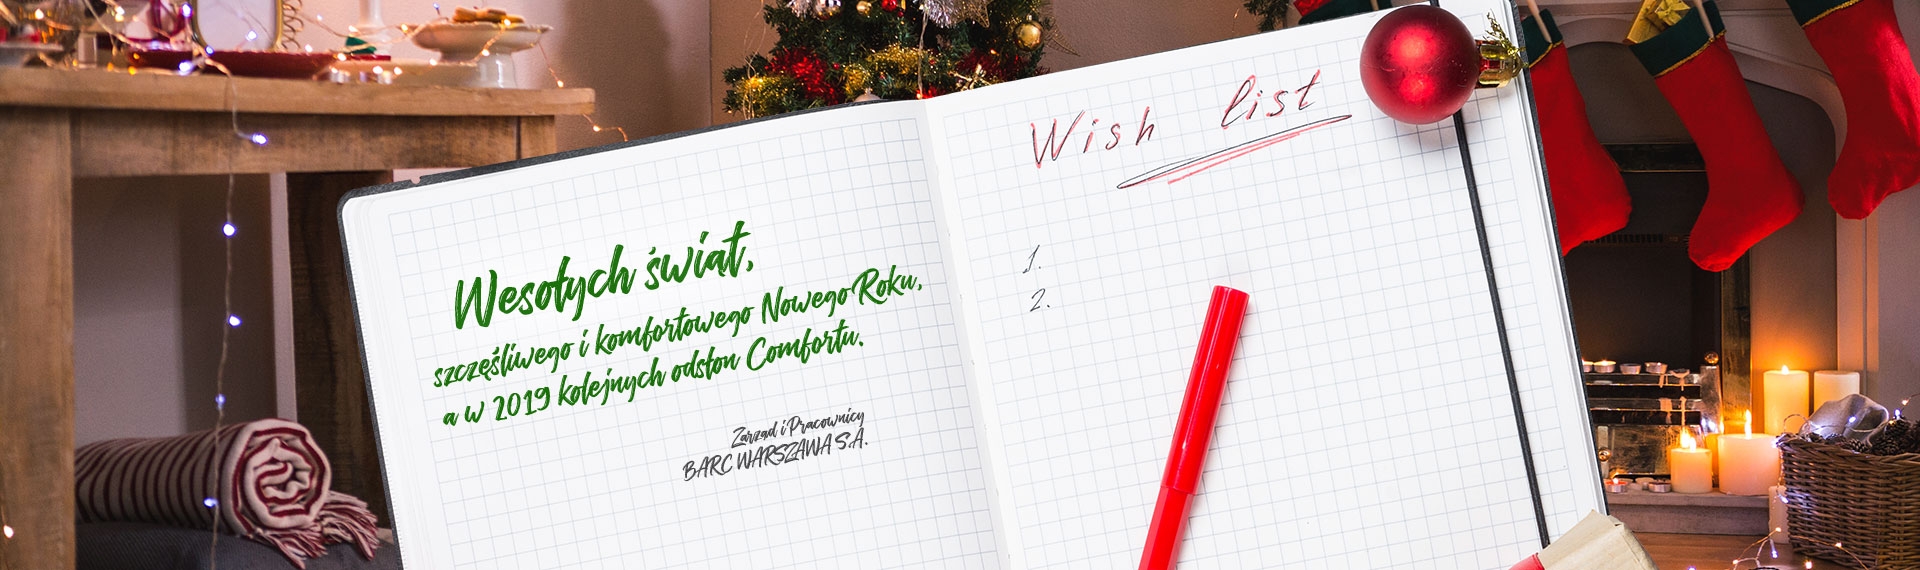 Wesołych świąt,
szczęśliwego i komfortowego Nowego Roku,
a w 2019 kolejnych odsłon Comfortu.
Zarząd i Pracownicy
BARC WARSZAWA S.A.
Wish list
1.
2.